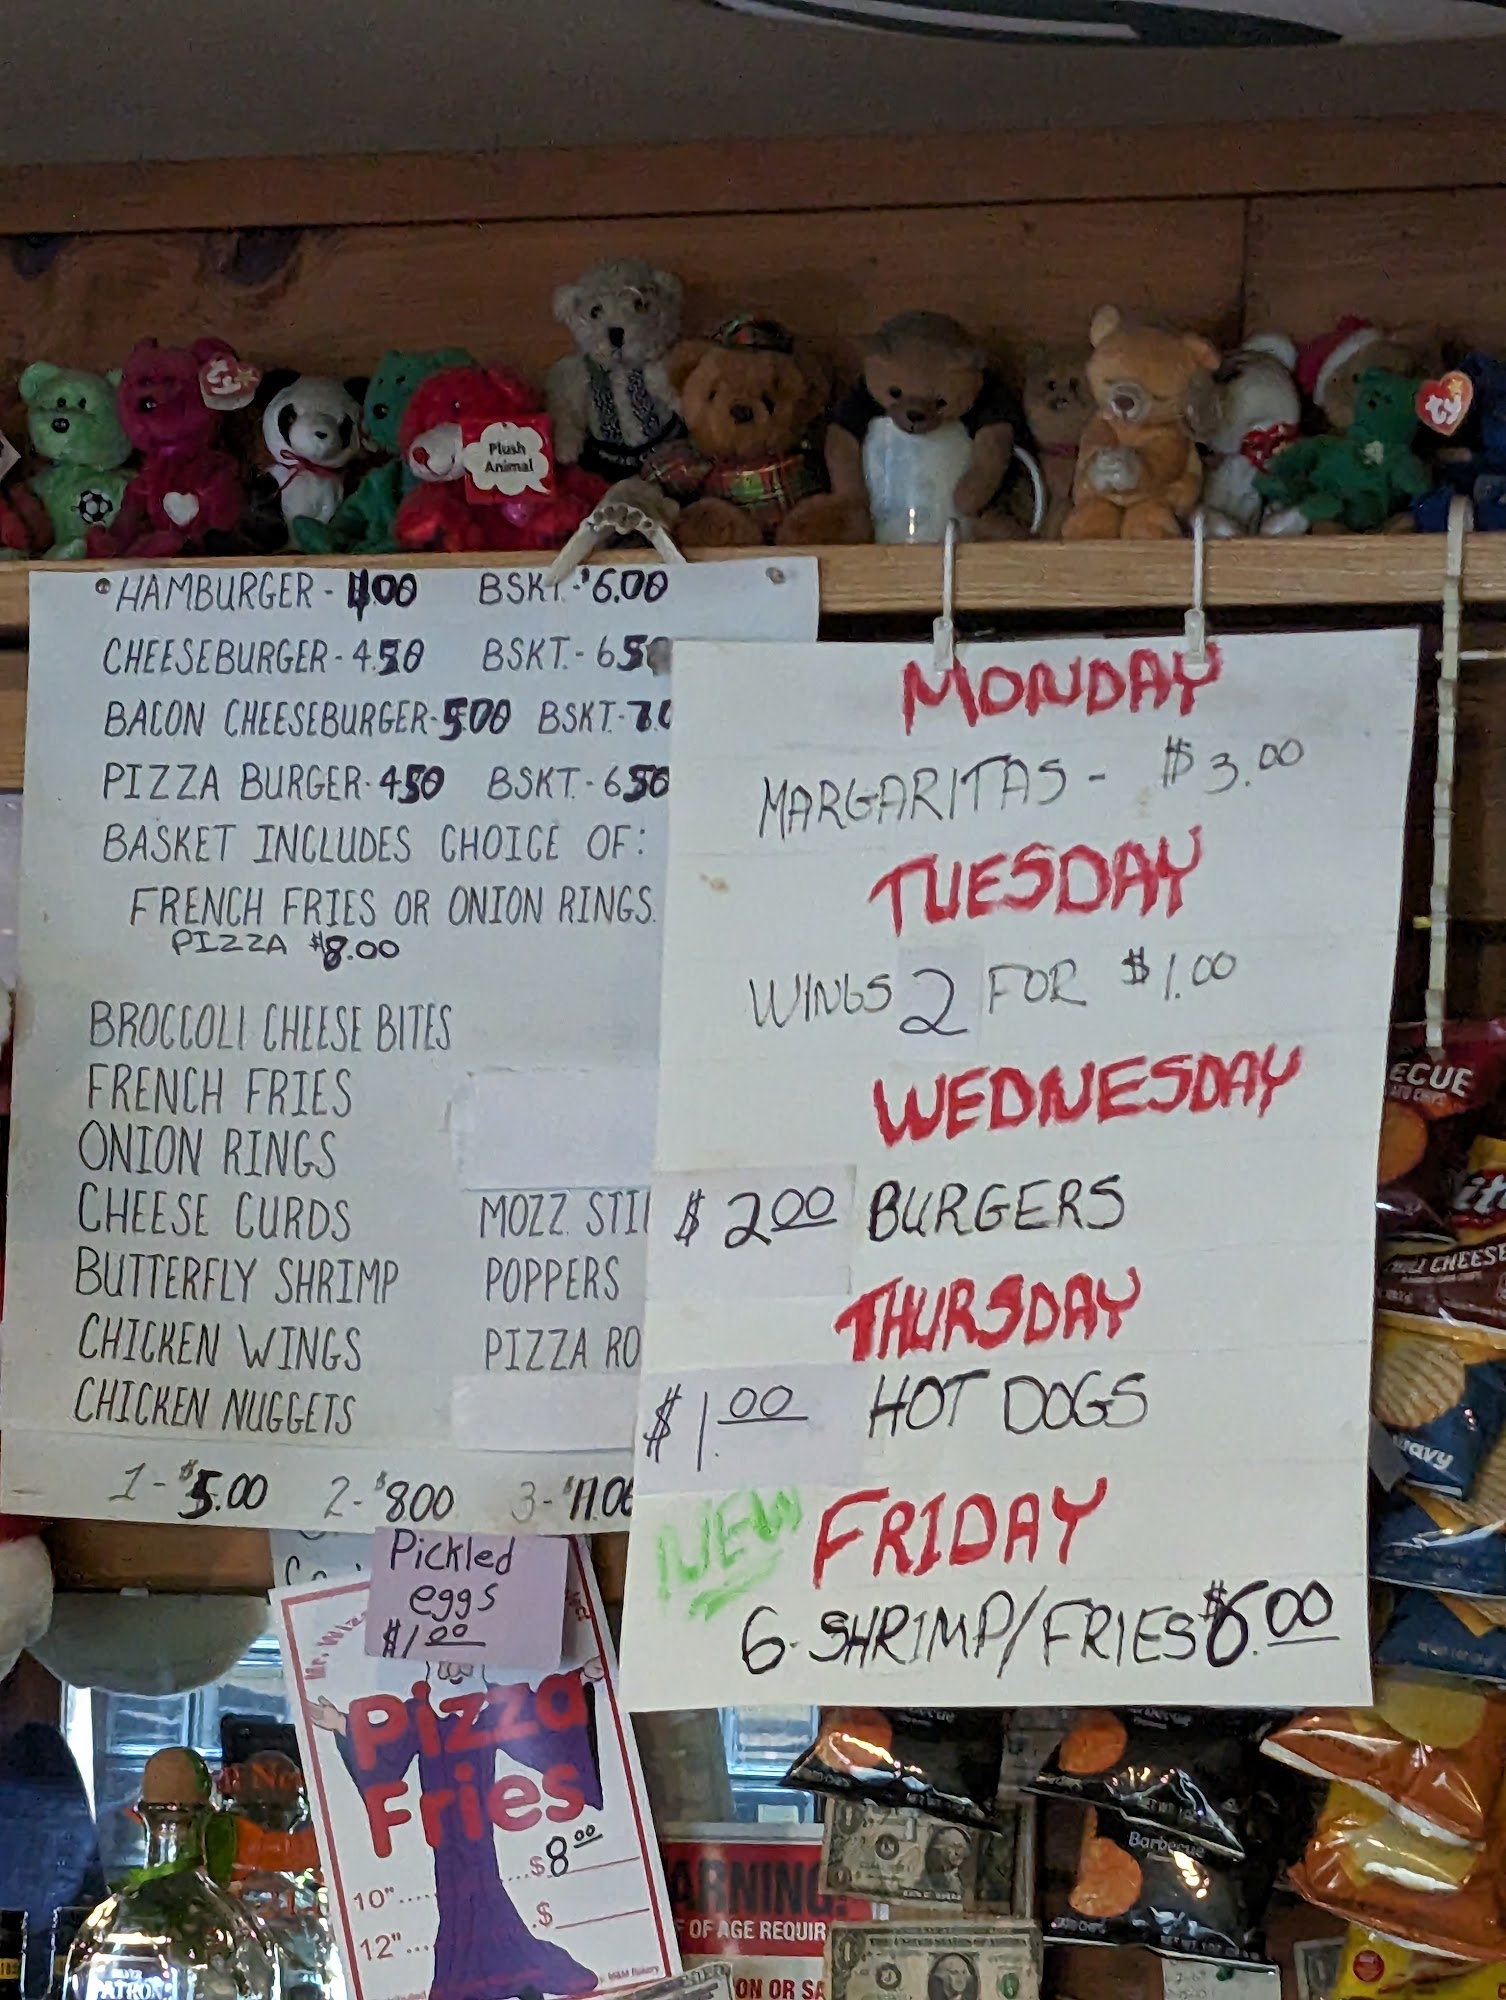 Plush
Animal
HAMBURGER - 4.00 BSKT. - $6.00
CHEESEBURGER - 4.50 BSKT. - 6.50
BACON CHEESEBURGER - 5.00 BSKT. - 7.0
PIZZA BURGER - 4.50 BSKT. - 6.50
BASKET INCLUDES CHOICE OF:
FRENCH FRIES OR ONION RINGS.
PIZZA $8.00
BROCCOLI CHEESE BITES
FRENCH FRIES
ONION RINGS
CHEESE CURDS MOZZ. STI
BUTTERFLY SHRIMP POPPERS
CHICKEN WINGS PIZZA RO
CHICKEN NUGGETS
1 - $5.00 2 - $8.00 3 - $11.00
MONDAY
MARGARITAS - $3.00
TUESDAY
WINGS 2 FOR $1.00
WEDNESDAY
$2.00 BURGERS
THURSDAY
$1.00 HOT DOGS
NEW FRIDAY
6 - SHRIMP/FRIES $6.00
Pickled
eggs
$1.00
Pizza
Fries
10".....$8.00
12"....$
ARNING!
OF AGE REQUIR
ON OR SA
PATRON
ECUE
CHEESE
Wavy
Barbecue